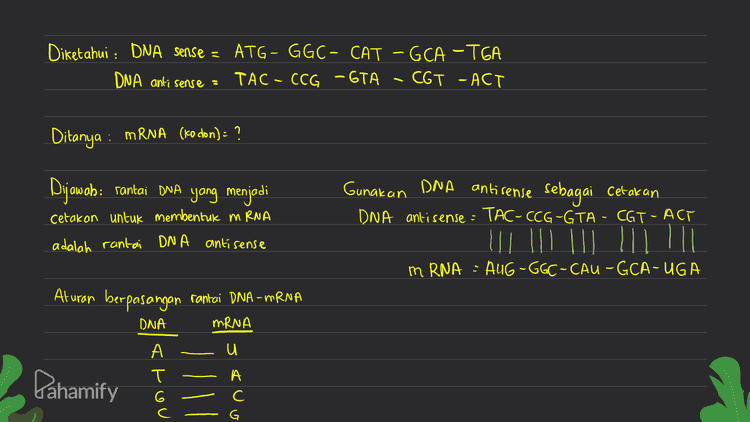 Diketahui : DNA sense = ATG - GGC - CAT - GCA - TGA
DNA anti sense = TAC - CCG - GTA - CGT - ACT
Ditanya : mRNA (kodon) = ?
Dijawab : rantai DNA yang menjadi
cetakan untuk membentuk mRNA
adalah rantai DNA antisense
Aturan berpasangan rantai DNA-mRNA
DNA mRNA
A — U
T — A
G — C
C — G
Gunakan DNA antisense sebagai cetakan
DNA antisense = TAC-CCG-GTA - CGT - ACT
mRNA = AUG-GGC-CAU-GCA-UGA
Pahamify